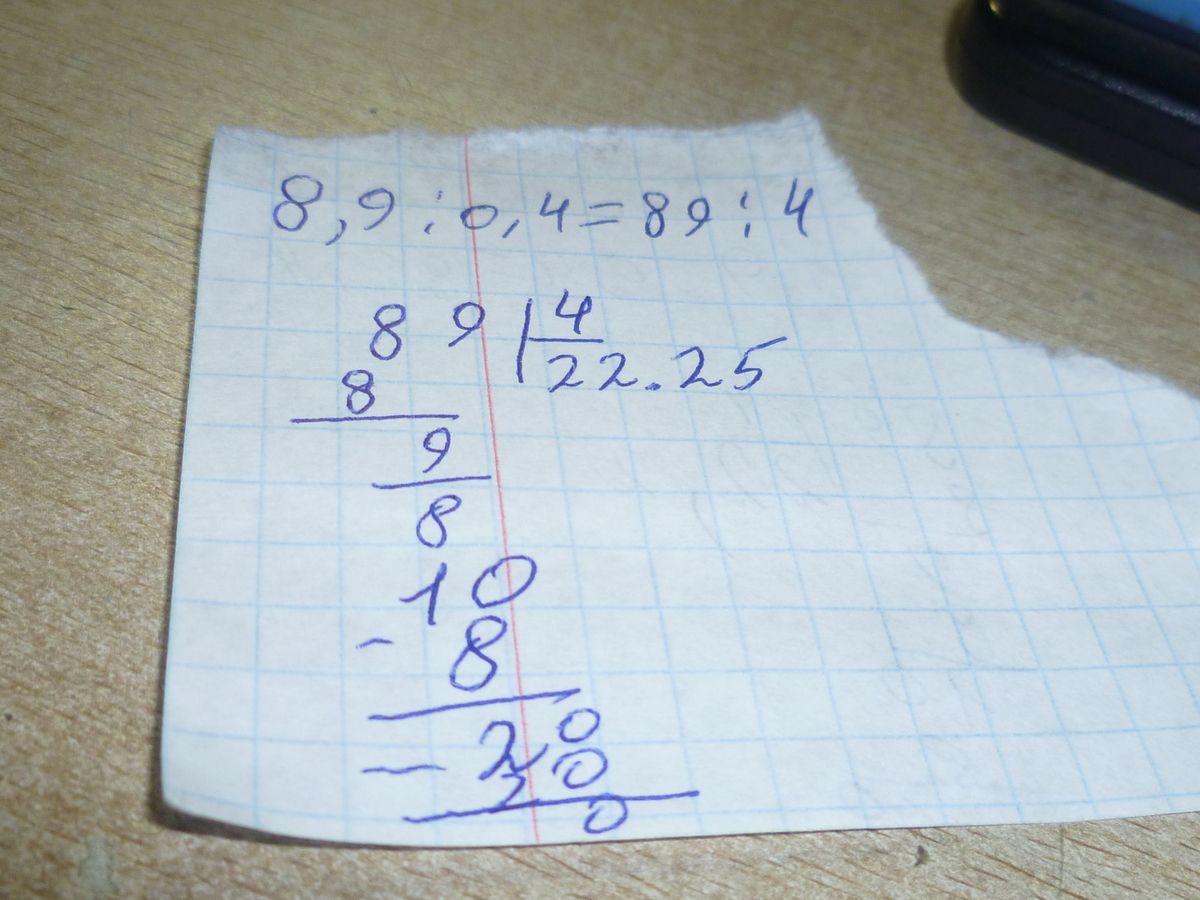 8,9:0,4=89:4
89 4
8 22.25
9
8
10
- 8
20
- 20
0